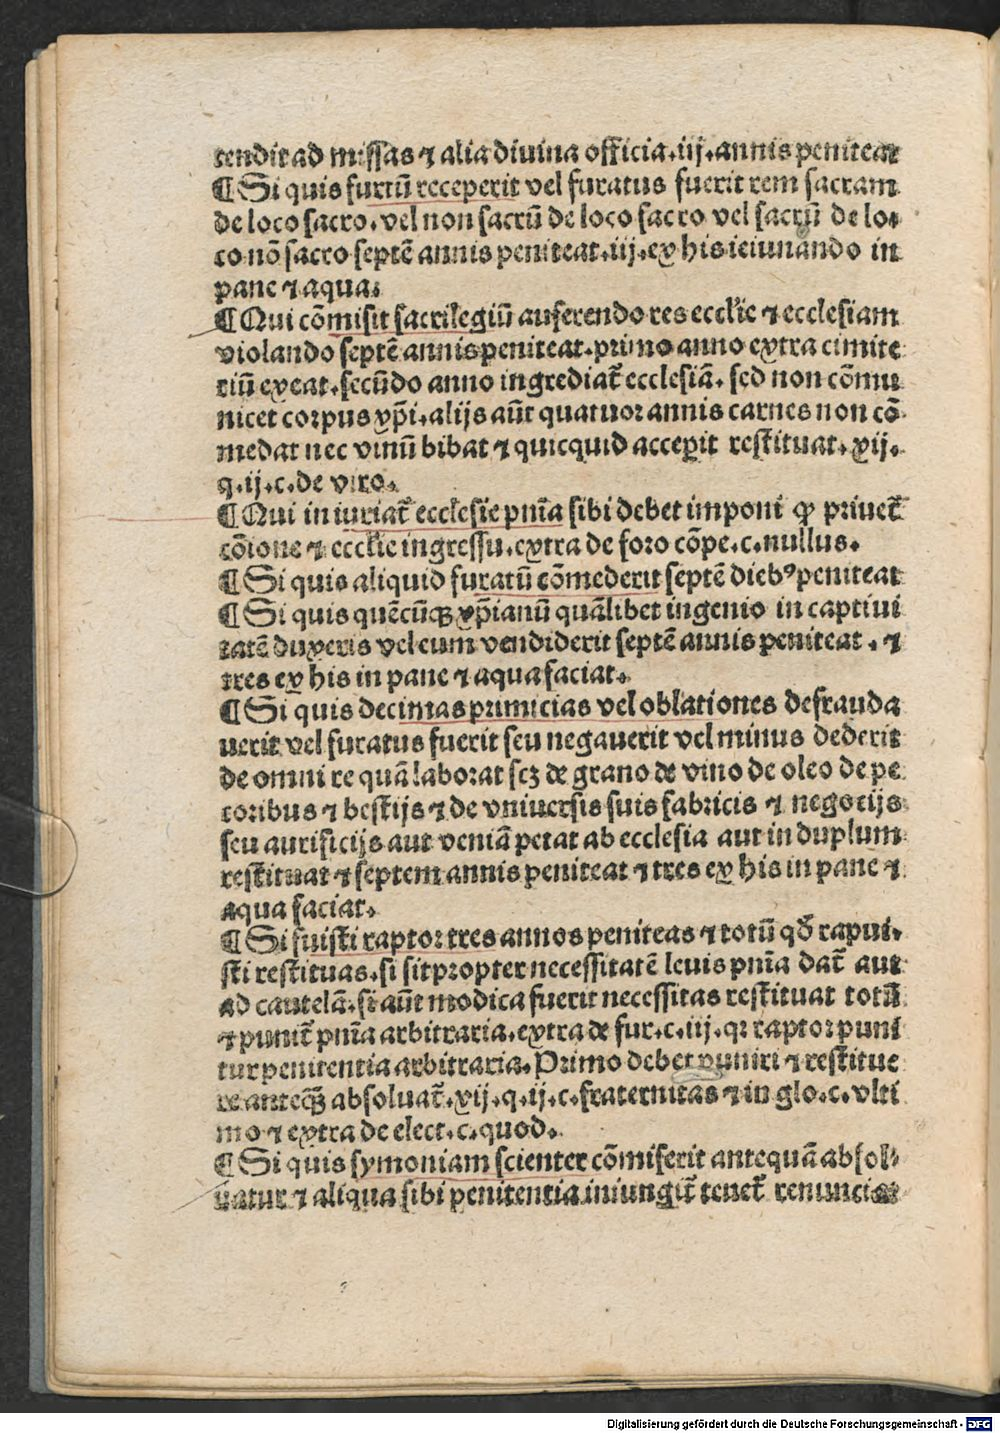 tendit ad missas ⁊ alia diuina officia.iij.annis peniteat
¶ Si quis furtū receperit vel furatus fuerit rem sacram
de loco sacro.vel non sacrū de loco sacro vel sacrū de lo-
co nō sacro septē annis peniteat.iij.ex his ieiunando in
pane ⁊ aqua.
¶ Qui cōmisit sacrilegiū auferendo res eccl'ie ⁊ ecclesiam
violando septē annis peniteat.primo anno extra cimite
riū exeat.secūdo anno ingrediat᷑ ecclesiā. sed non cōmu
nicet corpus xp̄i.alijs aūt quatuor annis carnes non cō-
medat nec vinū bibat ⁊ quicquid acceperit restituat.xij.
q.ij.c.de viro.
¶ Qui in iuriat᷑ ecclesie pnīa sibi debet imponi ꝙ priuet᷑
cōione ⁊ eccl'ie ingressu.extra de foro cōpe.c.nullus.
¶ Si quis aliquid furatū cōmederit septē dieb⁹ peniteat
¶ Si quis quēcūqꝫ xp̄ianū quālibet ingenio in captiui
tatē duxeris vel eum vendiderit septē annis peniteat . ⁊
tres ex his in pane ⁊ aqua faciat.
¶ Si quis decimas primicias vel oblationes defrauda
uerit vel furatus fuerit seu negauerit vel minus dederit
de omni re quā laborat scꝫ de grano de vino de oleo de pe
coribus ⁊ bestijs ⁊ de vniuersis suis fabricis ⁊ negocijs
seu aurificijs aut veniā petat ab ecclesia aut in duplum
restituat ⁊ septem annis peniteat ⁊ tres ex his in pane ⁊
aqua faciat.
¶ Si fuisti raptor tres annos peniteas ⁊ totū qđ rapui-
sti restituas.si sit propter necessitatē leuis pnīa dat᷑ aut
ad cautelā.si aūt modica fuerit necessitas restituat totū
⁊ punit᷑ pnīa arbitraria.extra de fur.c.iij.qꝛ raptor puni
tur penitentia arbitraria.Primo debet puniri ⁊ restitue
re anteqꝫ̄ absoluat᷑.xij.q.ij.c.fraternitas ⁊ in glo.c.vlti
mo ⁊ extra de elect.c.quod.
¶ Si quis symoniam scienter cōmiserit antequā absol-
uatur ⁊ aliqua sibi penitentia iniungit᷑ tenet᷑ renunciar
Digitalisierung gefördert durch die Deutsche Forschungsgemeinschaft - DFG